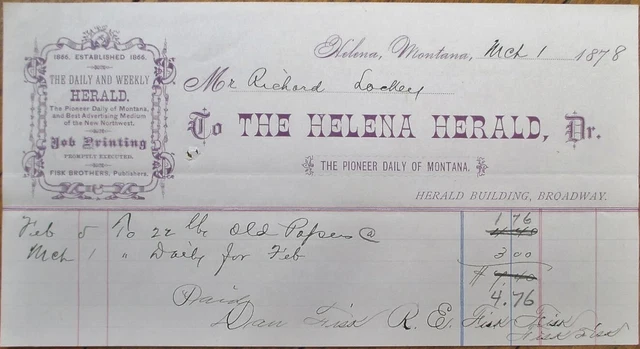 1866. ESTABLISHED 1866.
THE DAILY AND WEEKLY
HERALD.
The Pioneer Daily of Montana,
and Best Advertising Medium
of the New Northwest.
Job Printing
PROMPTLY EXECUTED.
FISK BROTHERS, Publishers.
Helena, Montana, Mch 1 1878
Mr Richard Lockey
To THE HELENA HERALD, Dr.
THE PIONEER DAILY OF MONTANA.
HERALD BUILDING, BROADWAY.
Feb 5 To 22 lbs Old Papers @ 1.76
Mch 1 " Daily for Feb 3 00
4.76
Paid
Dan Fisk R. E. Fisk Fisk
Fisk Fisk